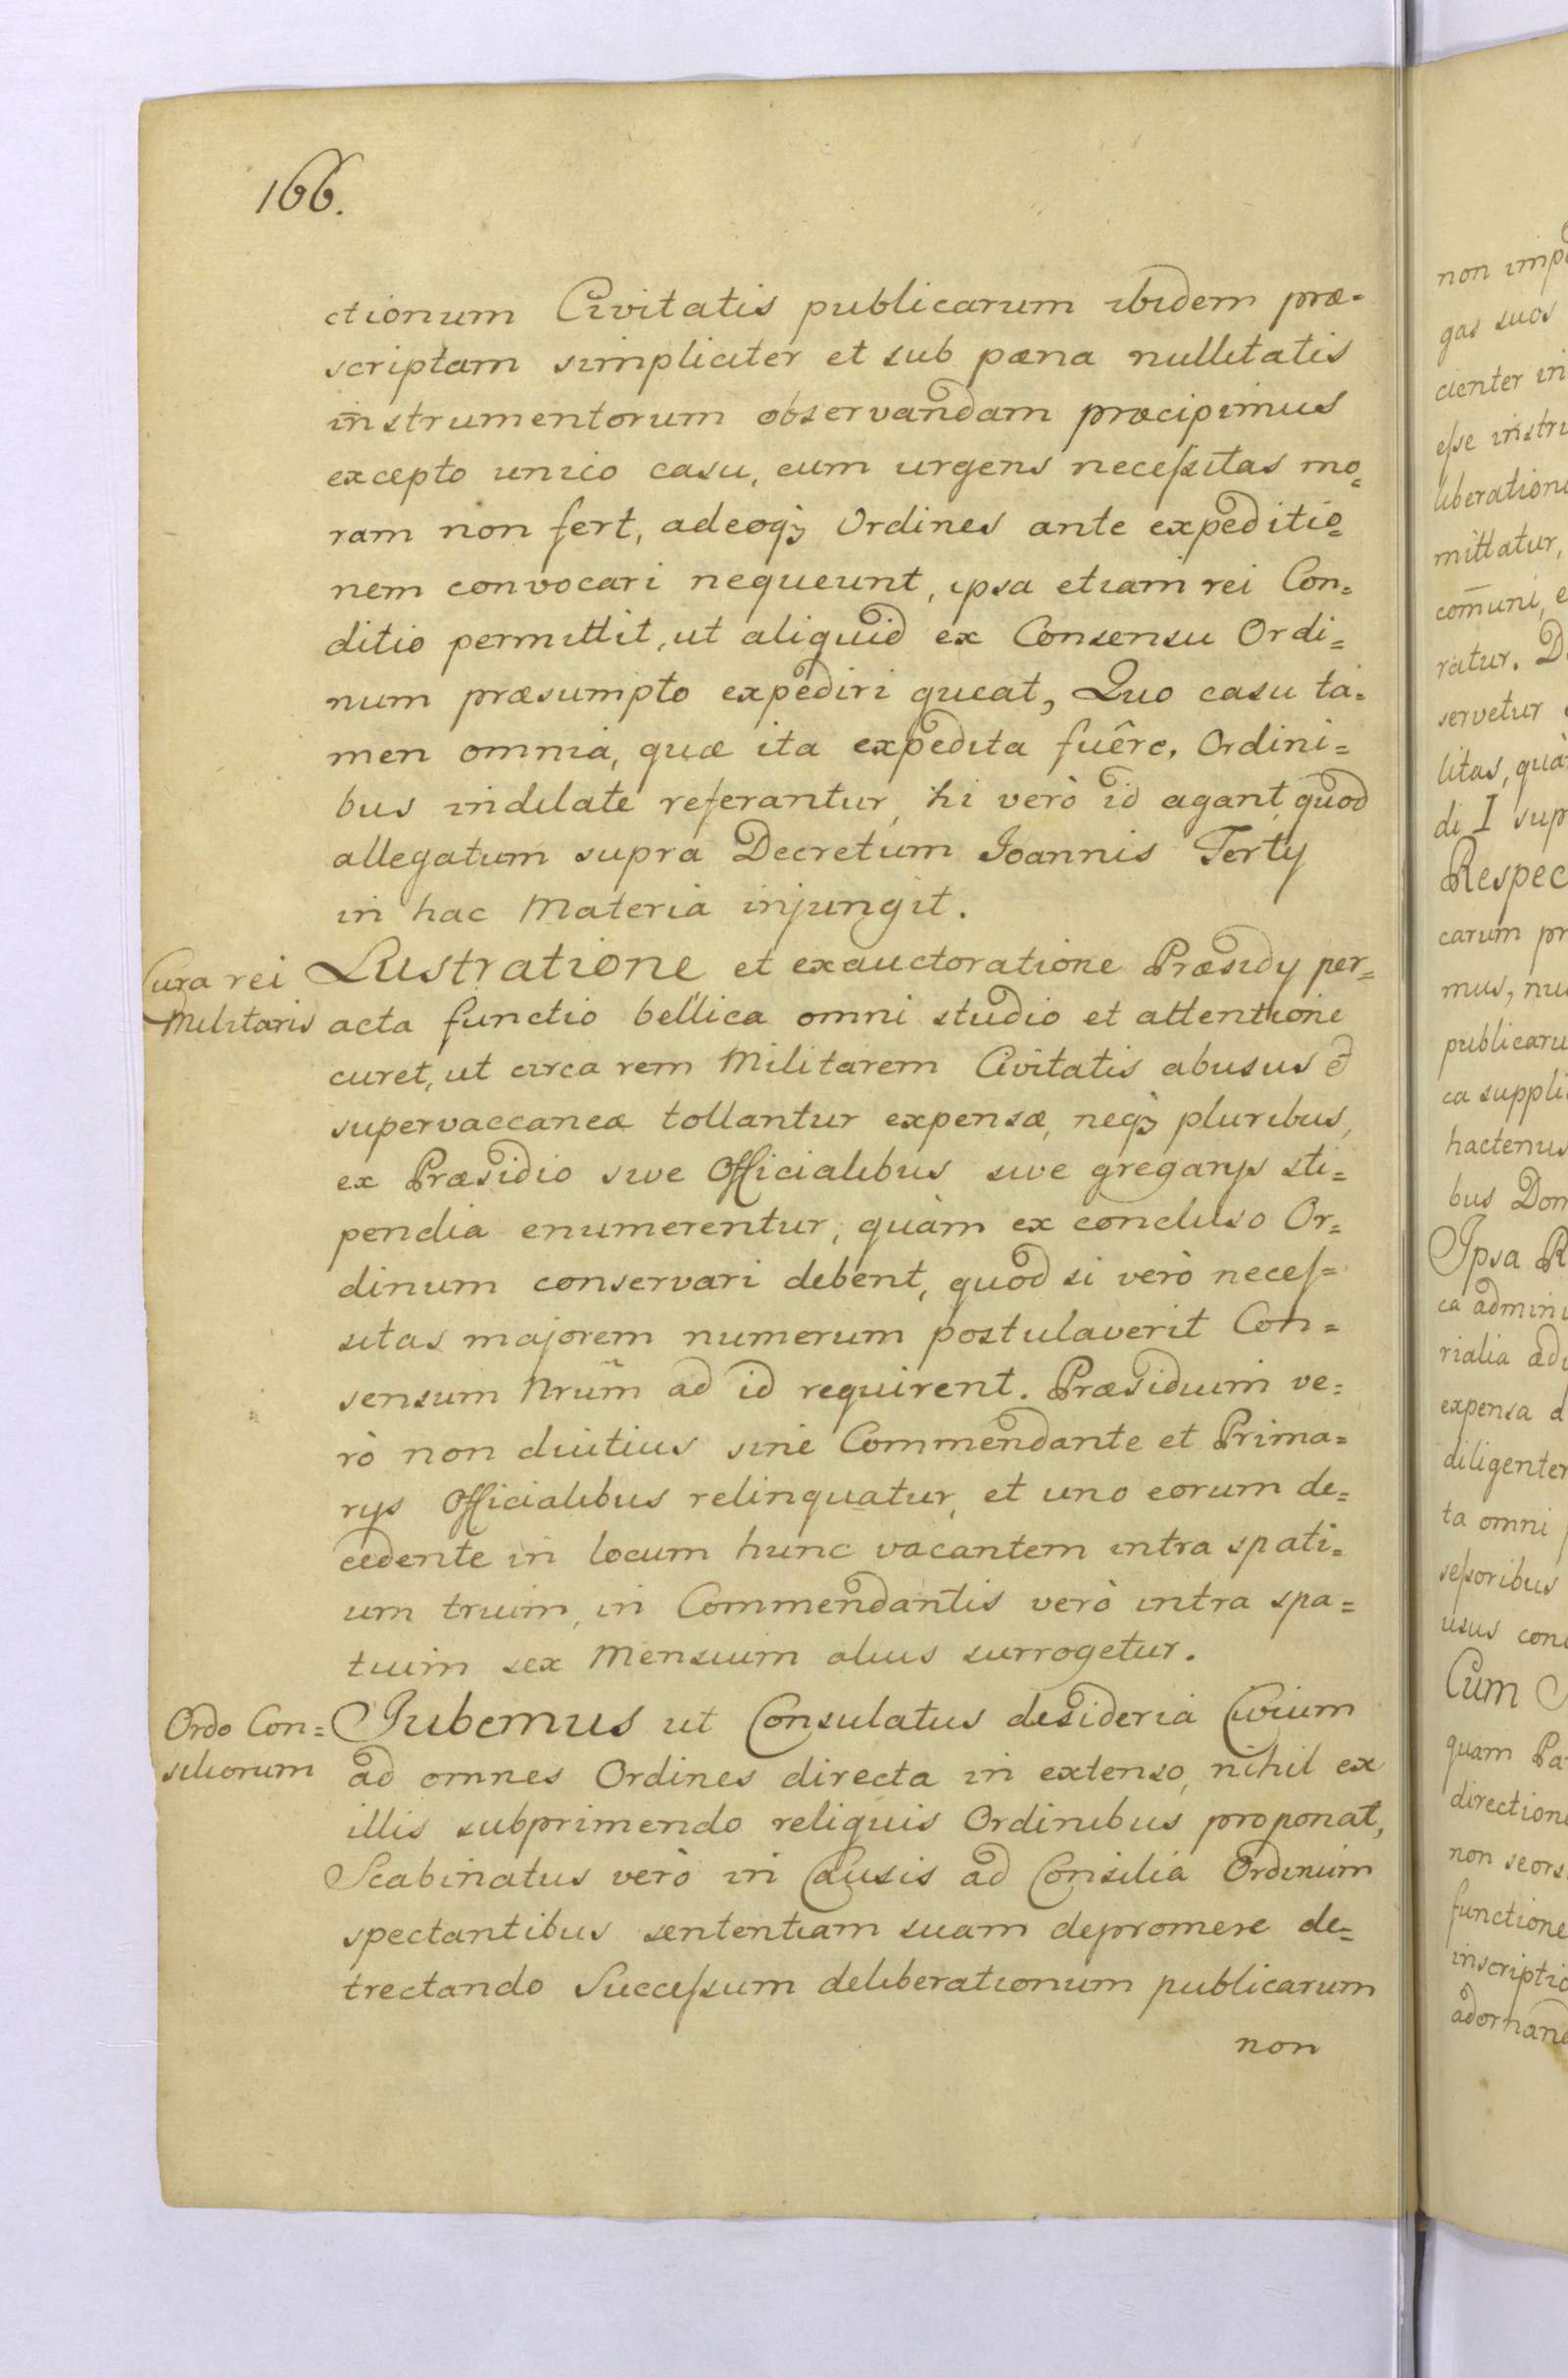 166.
ctionum Civitatis publicarum ibidem præ=
scriptam simpliciter et sub pæna nullitatis
instrumentorum observandam præcipimus
excepto unico casu, cum urgens neceſsitas mo=
ram non fert, adeoqꝫ Ordines ante expeditio=
nem convocari nequeunt, ipsa etiam rei Con=
ditio permittit, ut aliquid ex Consensu Ordi=
num præsumpto expediri queat, Quo casu ta=
men omnia, quæ ita expedita fuêre, Ordini=
bus indilate referantur, hi verò id agant, quod
allegatum supra Decretum Joannis Tertÿ
in hac Materia injungit.
Cura rei
Militaris
Lustratione et exauctoratione Præsidÿ per=
acta functio bellica omni studio et attentione
curet, ut circa rem Militarem Civitatis abusus et
supervaccaneæ tollantur expensæ, neqꝫ pluribus,
ex Præsidio sive Officialibus sive gregarÿs sti=
pendia enumerentur, quàm ex concluso Or=
dinum conservari debent, quod si verò neceſ=
sitas majorem numerum postulaverit Con=
sensum Nrum̃ ad id requirent. Præsidium ve=
rò non diutius sine Commendante et Prima=
rÿs Officialibus relinquatur, et uno eorum de=
cedente in locum hunc vacantem intra spati=
um trium, in Commendantis verò intra spa=
tium sex Mensium alius surrogetur.
Ordo Con=
siliorum
Jubemus ut Consulatus desideria Civium
ad omnes Ordines directa in extenso, nihil ex
illis subprimendo reliquis Ordinibus proponat,
Scabinatus verò in Causis ad Consilia Ordinum
spectantibus sententiam suam depromere de=
trectando Succeſsum deliberationum publicarum
non
non imp
gas suos
cienter in
eſse instru
liberation
mittatur,
com̄uni, e
ratur. D
servetur
litas, quà
di I sup
Respec
carum pr
mus, nu
publicaru
ca suppli
hactenus
bus Dom
Ipsa R
ca admini
rialia adi
expensa a
diligenter
ta omni
seſsoribus
usus con
Cum
quam Pa
direction
non seors
functione
inscriptio
adornand